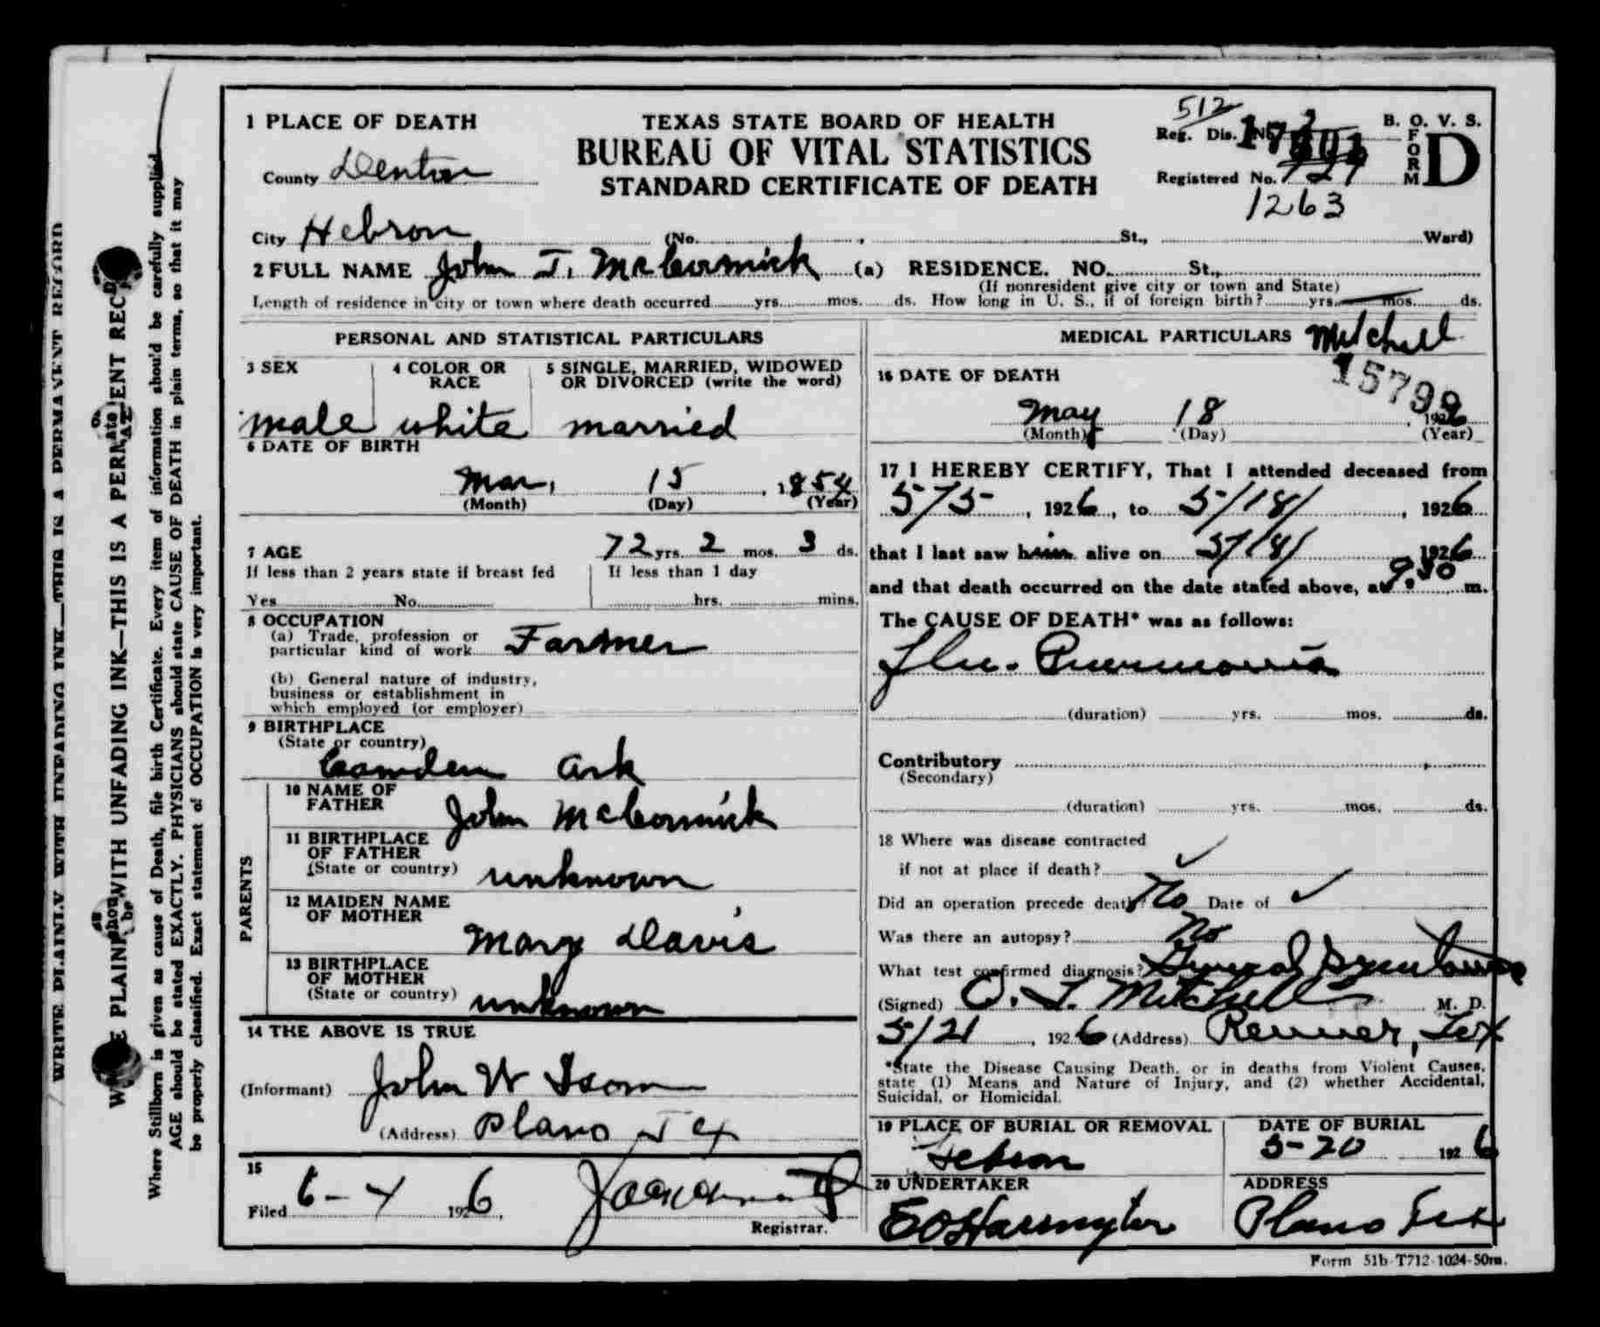 WRITE PLAINLY WITH UNFADING INK—THIS IS A PERMANENT RECORD
PLAINLY WITH UNFADING INK—THIS IS A PERMANENT REC
Where Stillborn is given as cause of Death, file birth Certificate. Every item of information should be carefully supplied
AGE should be stated EXACTLY. PHYSICIANS should state CAUSE OF DEATH in plain terms, so that it may
be properly classified. Exact statement of OCCUPATION is very important.
1 PLACE OF DEATH
County Denton
TEXAS STATE BOARD OF HEALTH
BUREAU OF VITAL STATISTICS
STANDARD CERTIFICATE OF DEATH
512
Reg. Dis.
Registered No.
1263
B. O. V. S.
FORM D
City Hebron (No. , St., Ward)
2 FULL NAME John T. McCormick (a) RESIDENCE. NO. St.,
(If nonresident give city or town and State)
Length of residence in city or town where death occurred yrs. mos. ds. How long in U. S., if of foreign birth? yrs. mos. ds.
PERSONAL AND STATISTICAL PARTICULARS
3 SEX
male
4 COLOR OR RACE
white
5 SINGLE, MARRIED, WIDOWED OR DIVORCED (write the word)
married
6 DATE OF BIRTH
Mar, 15, 1854
(Month) (Day) (Year)
7 AGE 72 yrs. 2 mos. 3 ds.
If less than 2 years state if breast fed
Yes No
If less than 1 day
hrs. mins.
8 OCCUPATION
(a) Trade, profession or
particular kind of work Farmer
(b) General nature of industry,
business or establishment in
which employed (or employer)
9 BIRTHPLACE
(State or country)
Camden Ark
PARENTS
10 NAME OF FATHER John McCormick
11 BIRTHPLACE OF FATHER
(State or country) unknown
12 MAIDEN NAME OF MOTHER Mary Davis
13 BIRTHPLACE OF MOTHER
(State or country) unknown
14 THE ABOVE IS TRUE
(Informant) John W Isom
(Address) Plano Tex
15
Filed 6-4 1926,
Registrar.
MEDICAL PARTICULARS Mitchell
15799
16 DATE OF DEATH
May 18, 1926
(Month) (Day) (Year)
17 I HEREBY CERTIFY, That I attended deceased from
5/5, 1926, to 5/18/, 1926
that I last saw him alive on 5/18/ 1926
and that death occurred on the date stated above, at 9.30 m.
The CAUSE OF DEATH* was as follows:
Flu. Pneumonia
(duration) yrs. mos. ds.
Contributory
(Secondary)
(duration) yrs. mos. ds.
18 Where was disease contracted
if not at place if death? ✓
Did an operation precede death? No Date of ✓
Was there an autopsy? No
What test confirmed diagnosis? General
(Signed) O. T. Mitchell M. D.
5/21, 1926 (Address) Renner, Tex
*State the Disease Causing Death, or in deaths from Violent Causes,
state (1) Means and Nature of Injury, and (2) whether Accidental,
Suicidal, or Homicidal.
19 PLACE OF BURIAL OR REMOVAL
Hebron
DATE OF BURIAL
5-20 1926
20 UNDERTAKER
E O Harrington
ADDRESS
Plano Tex
Form 51b-T712-1024-50m.